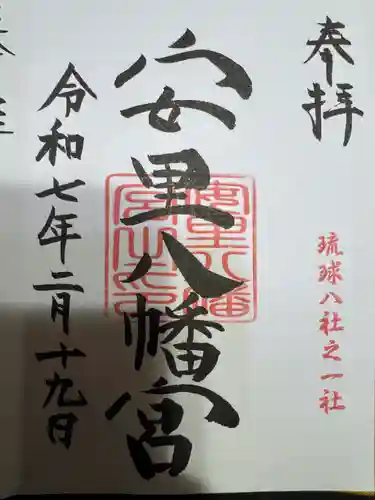 奉拝
琉球八社之一社
安里八幡宮
安里八幡宮之印
令和七年二月十九日